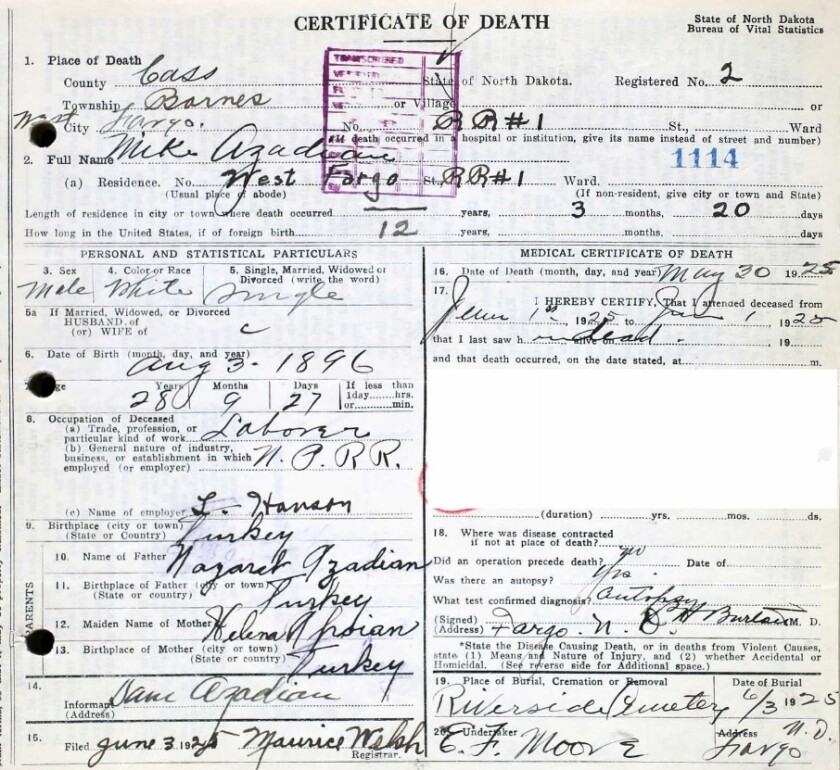 CERTIFICATE OF DEATH
State of North Dakota
Bureau of Vital Statistics
1. Place of Death
County Cass State of North Dakota. Registered No. 2
Township Barnes or Village or
West
City Fargo. No. RR#1 St., Ward
(If death occurred in a hospital or institution, give its name instead of street and number)
2. Full Name Mike Azadian 1114
(a) Residence. No. West Fargo St., RR#1 Ward.
(Usual place of abode) (If non-resident, give city or town and State)
Length of residence in city or town where death occurred years, 3 months, 20 days
How long in the United States, if of foreign birth 12 years, months, days
TRANSCRIBED
PERSONAL AND STATISTICAL PARTICULARS
3. Sex 4. Color or Race 5. Single, Married, Widowed or
Divorced (write the word)
Male White Single
5a If Married, Widowed, or Divorced
HUSBAND of
(or) WIFE of c
6. Date of Birth (month, day, and year)
Aug 3 - 1896
Age Years Months Days If less than
1 day hrs.
28 9 27 or min.
8. Occupation of Deceased
(a) Trade, profession, or
particular kind of work Laborer
(b) General nature of industry,
business, or establishment in which
employed (or employer) N. P. R R.
(c) Name of employer L. Hanson
9. Birthplace (city or town)
(State or Country) Turkey
PARENTS
10. Name of Father Nazaret Azadian
11. Birthplace of Father (city or town)
(State or country) Turkey
12. Maiden Name of Mother Helena
13. Birthplace of Mother (city or town)
(State or country) Turkey
14.
Informant Sam Azadian
(Address)
15. Filed June 3 1925 Maurice Walsh
Registrar.
MEDICAL CERTIFICATE OF DEATH
16. Date of Death (month, day, and year) May 30 1925
17.
I HEREBY CERTIFY, That I attended deceased from
June 1st, 1925 to June 1, 1925
that I last saw h alive on dead. 19
and that death occurred, on the date stated, at m.
(duration) yrs. mos. ds.
18. Where was disease contracted
if not at place of death?
Did an operation precede death? no Date of
Was there an autopsy? yes.
What test confirmed diagnosis? autopsy
(Signed) Burton M. D.
(Address) Fargo. N. D.
*State the Disease Causing Death, or in deaths from Violent Causes,
state (1) Means and Nature of Injury, and (2) whether Accidental or
Homicidal. (See reverse side for Additional space.)
19. Place of Burial, Cremation or Removal Date of Burial
Riverside Cemetery 6/3 1925
20. Undertaker Address
E. F. Moore Fargo N. D.